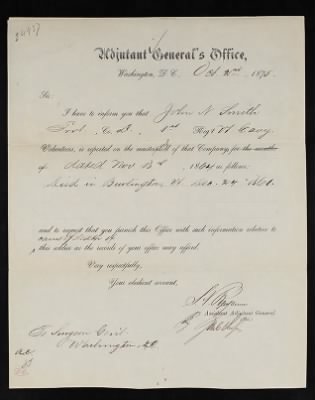 Adjutant General's Office,
Washington, D. C., Oct. 2nd 1875
Sir:
I have to inform you that John N. Smith
Co. 1st Reg't Vt Cavy.
Volunteers, is reported on the muster roll of that Company, for the month
of dated Nov 1864 as follows:
Died in Burlington Vt.
and to request that you furnish this Office with such information relative to
this soldier as the records of your office may afford.
Very respectfully,
Your obedient servant,
Assistant Adjutant General.
To Surgeon Genl.
Washington, D.C.